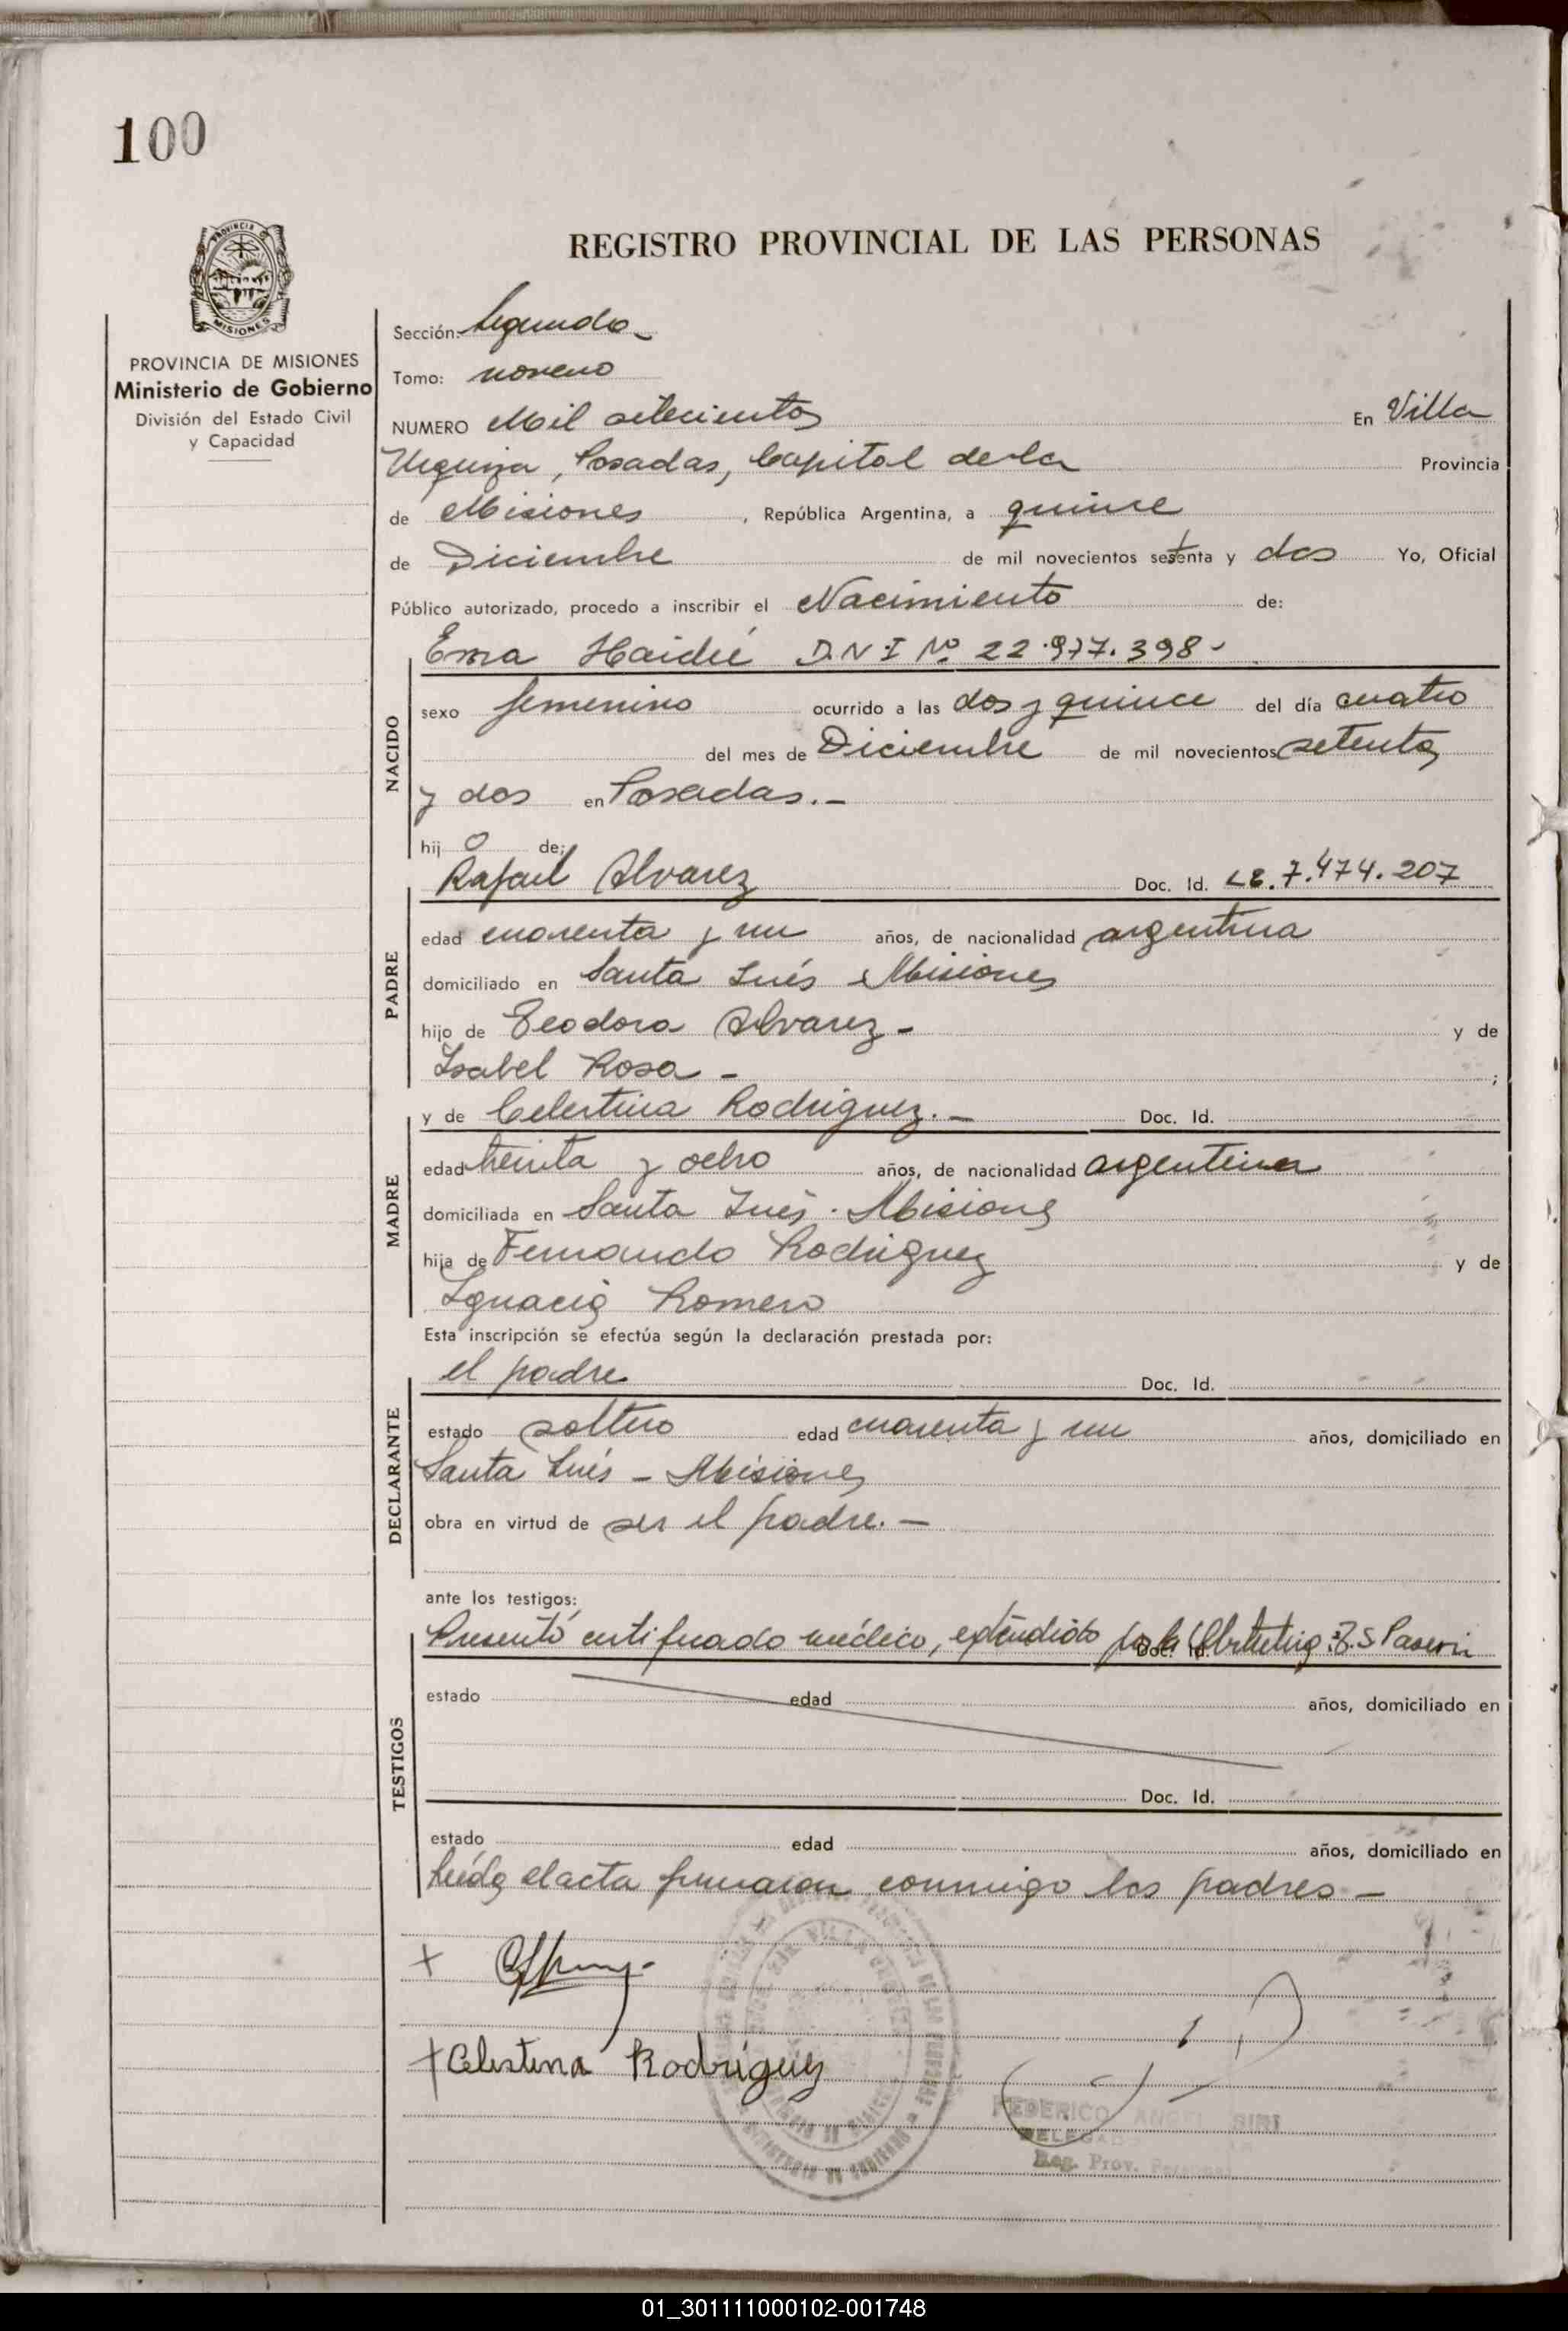 100
REGISTRO PROVINCIAL DE LAS PERSONAS
PROVINCIA DE MISIONES
Ministerio de Gobierno
División del Estado Civil
y Capacidad
Sección: Segunda
Tomo: noveno
NUMERO Mil setecientos En Villa
Urquiza, Posadas, Capital de la Provincia
de Misiones, República Argentina, a quince
de Diciembre de mil novecientos setenta y dos Yo, Oficial
Público autorizado, procedo a inscribir el Nacimiento de:
Ema Haideé D.N.I Nº 22.977.398-
NACIDO
sexo femenino ocurrido a las dos y quince del día cuatro
del mes de Diciembre de mil novecientos setenta
y dos en Posadas.-
hij o de:
Rafael Alvarez Doc. Id. L.E. 7.474.207
PADRE
edad cuarenta y un años, de nacionalidad argentina
domiciliado en Santa Inés Misiones
hijo de Teodora Alvarez - y de
Isabel Rosa - ;
MADRE
y de Celestina Rodriguez.- Doc. Id.
edad treinta y ocho años, de nacionalidad argentina
domiciliada en Santa Inés. Misiones
hija de Fernando Rodriguez y de
Ignacia Romero
Esta inscripción se efectúa según la declaración prestada por:
el padre Doc. Id.
DECLARANTE
estado soltero edad cuarenta y un años, domiciliado en
Santa Inés - Misiones
obra en virtud de ser el padre.-
ante los testigos:
Presentó certificado médico, extendido por la Doc. Id.
TESTIGOS
estado edad años, domiciliado en
Doc. Id.
estado edad años, domiciliado en
Leída el acta firmaron conmigo los padres -
+
+ Celestina Rodriguez
FEDERICO ANGEL SIRI
DELEGADO
Reg. Prov. Personas
01_301111000102-001748